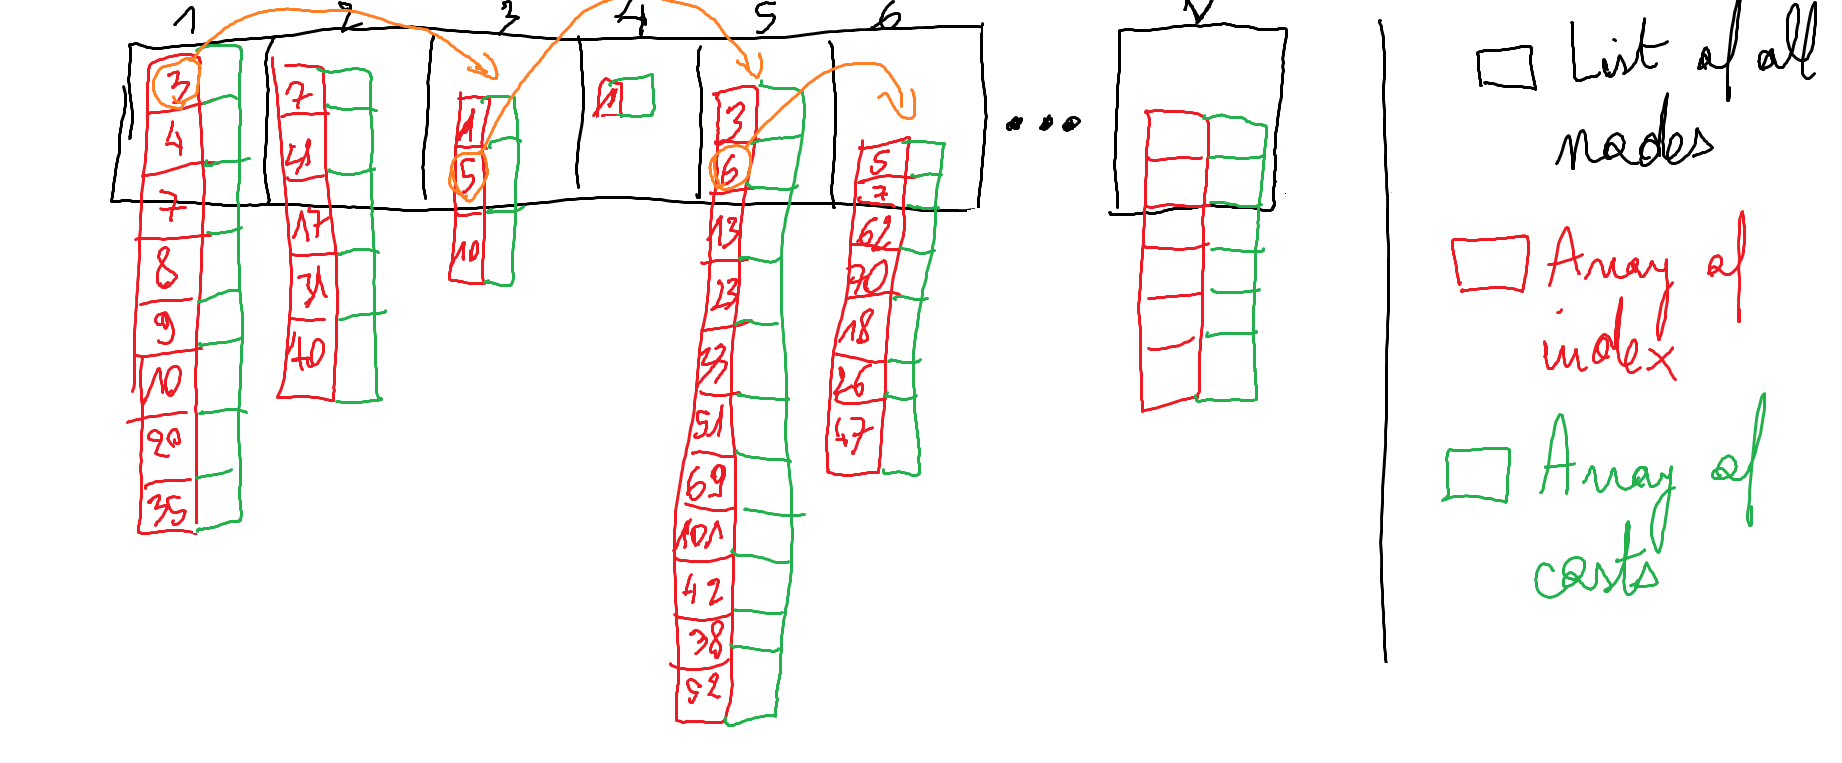 1 2 3 4 5 6 V
3
4
7
8
9
10
20
35
7
41
17
31
40
1
5
10
1
3
6
13
23
33
51
69
101
42
38
52
5
7
62
70
18
26
47
...
List of all
nodes
Array of
index
Array of
costs